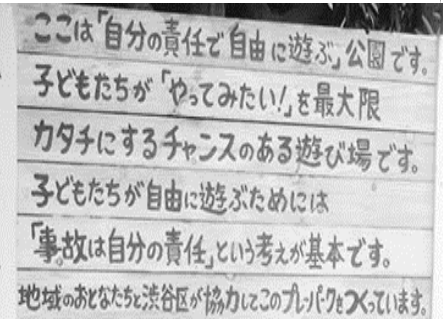 ここは「自分の責任で自由に遊ぶ」公園です。
子どもたちが「やってみたい!」を最大限
カタチにするチャンスのある遊び場です。
子どもたちが自由に遊ぶためには
「事故は自分の責任」という考えが基本です。
地域のおとなたちと渋谷区が協力してこのプレーパークをつくっています。